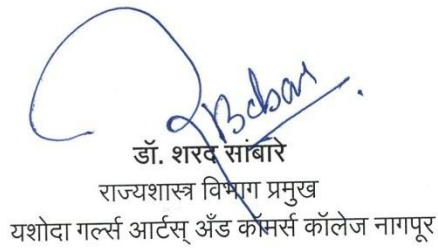 डॉ. शरद सांबारे
राज्यशास्त्र विभाग प्रमुख
यशोदा गर्ल्स आर्टस् अँड कॉमर्स कॉलेज नागपूर